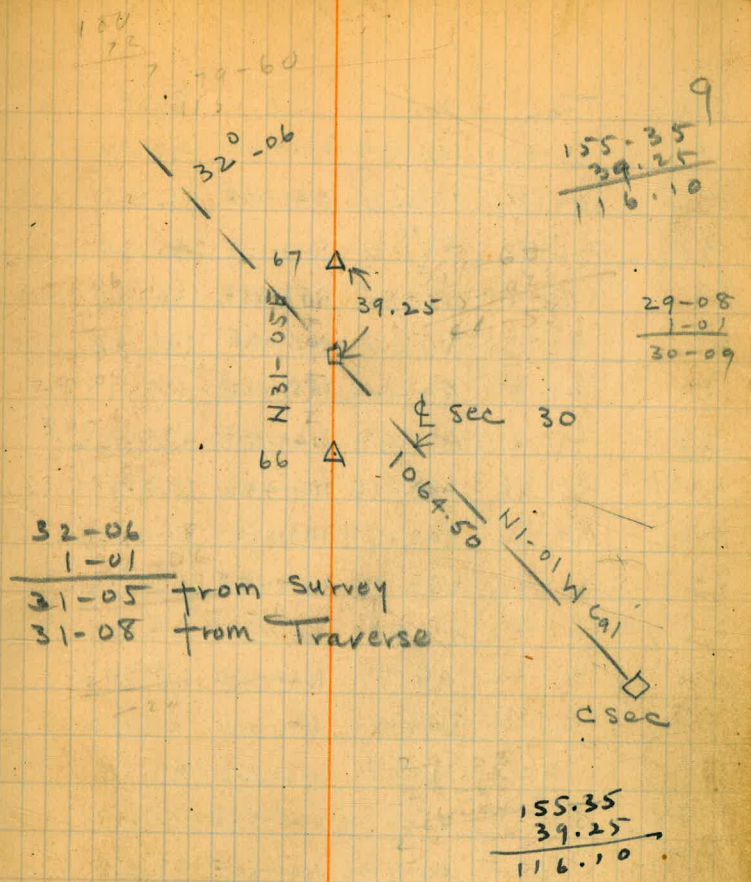 9
155.35
39.25
116.10
32°-06
67
39.25
N31-05E
29-08
1-01
30-09
℄ sec 30
66
1064.50
N1-01W Cal
32-06
1-01
31-05 from survey
31-08 from Traverse
C sec
155.35
39.25
116.10